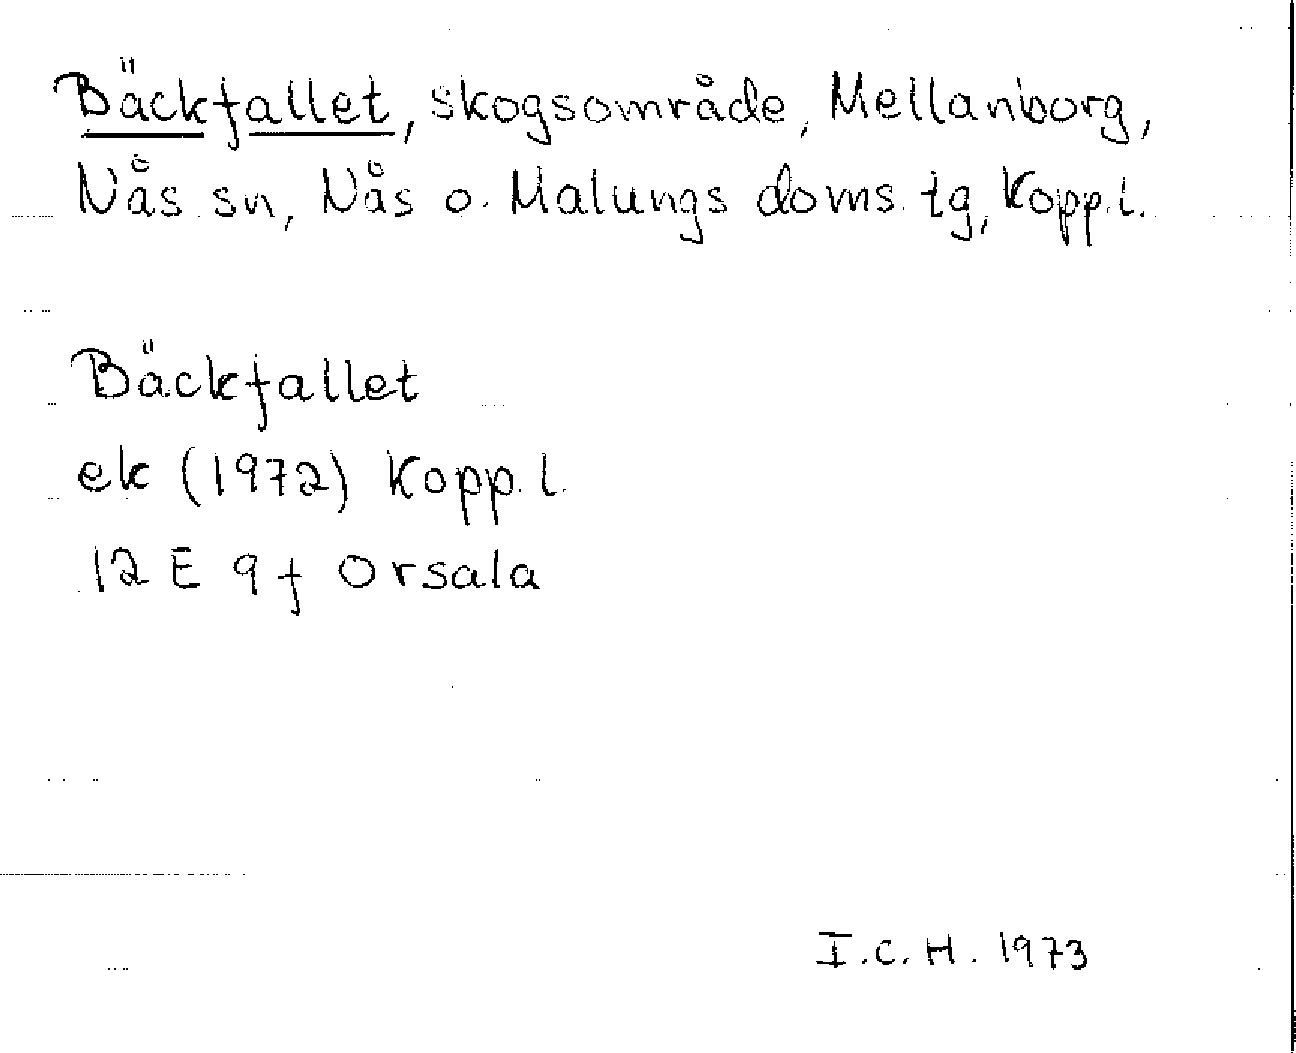 Bäckfallet, skogsområde, Mellanborg,
Nås sn, Nås o. Malungs doms. tg, Kopp. l.
Bäckfallet
ek (1972) Kopp. l.
12 E 9 f Orsala
I.C.H. 1973